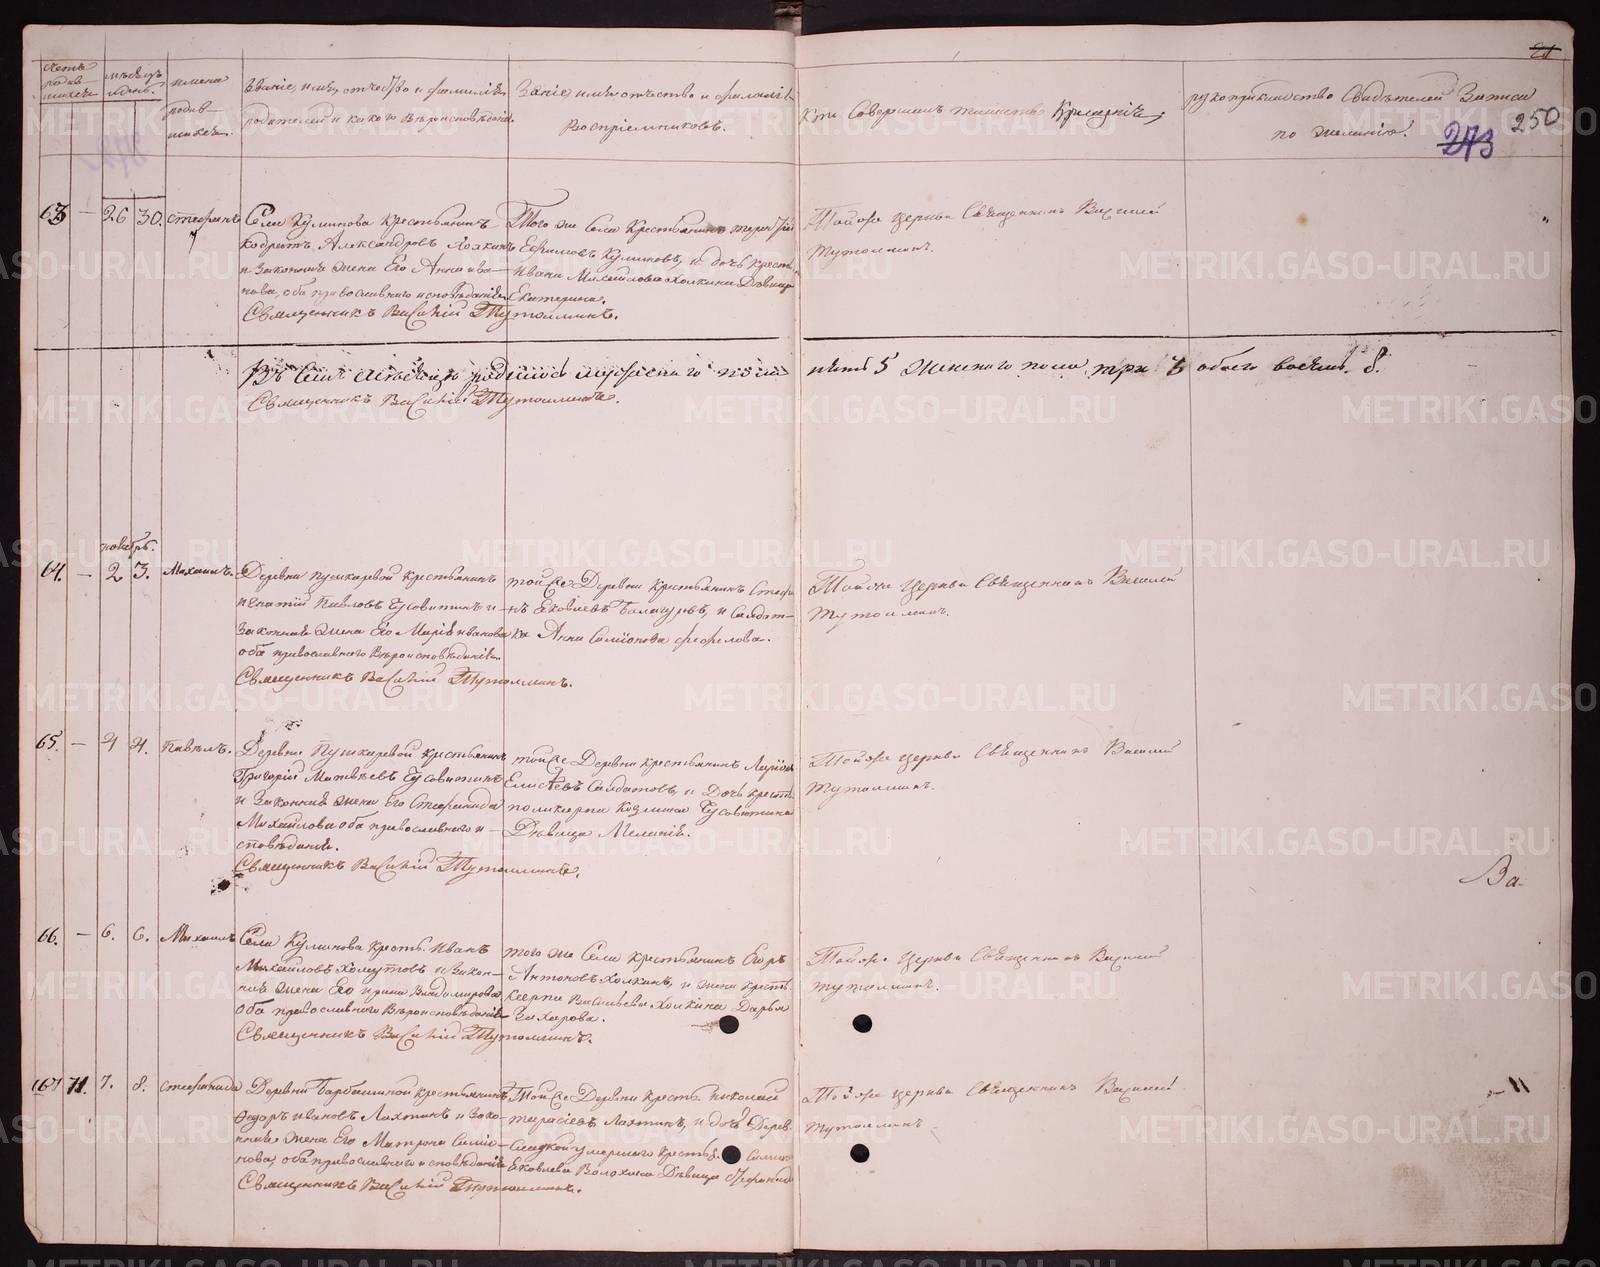 Счетъ родив- шихся
мѣсяцъ и день.
имена родив- шихся.
Званіе, имя, отчество и фамилія
родителей и какого вѣроисповѣданія.
Званіе, имя, отчество и фамилія
Воспріемниковъ.
Кто Совершалъ таинство Крещенія
рукоприкладство Свидѣтелей Записи
по желанію.
21
273
250
63 — 26 30. Стефанъ
Села Куликова крестьянинъ
Александровъ Холкинъ
и Законная жена Его Анна Ива-
нова, оба православнаго исповѣданія
Священникъ Василій Тутолминъ.
Того же Села Крестьянинъ
Ефимовъ Куликовъ, и дочь крест.
Ивана Михайлова Холкина Дѣвица
Екатерина.
Тойже Церкви Священникъ Василій
Тутолминъ.
Въ Семъ мѣсяце родилось мужескаго пола пять 5 женского пола три 3 обоего восемь. 8.
Священникъ Василій Тутолминъ.
ноябрь.
64. — 2 3. Михаилъ.
Деревни Пушкаревой Крестьянинъ
Игнатій Павловъ Чусовитинъ и
Законная жена Его Марія Иванова
оба православнаго Вѣроисповѣданія.
Священникъ Василій Тутолминъ.
той же Деревни Крестьянинъ Стефа-
нъ Яковлевъ Балашовъ, и Салдат-
ка Анна Семіонова Фефилова.
Тойже Церкви Священникъ Василій
Тутолминъ.
65. — 4 4. Павелъ.
Деревни Пушкаревой крестьянинъ
Григорій Матвѣевъ Чусовитинъ
и Законная жена Его Стефанида
Михайлова оба православнаго и-
сповѣданія.
Священникъ Василій Тутолминъ.
той же Деревни крестьянинъ
Елисѣевъ Салдатовъ, и Дочь крестья.
поликарпа Козмина Чусовитина
Дѣвица Меланія.
Тойже Церкви Священникъ Василій
Тутолминъ.
Ва-
66. — 6. 6. Михаилъ
Села Куликова Крестья. Иванъ
Михайловъ Хомутовъ и Закон-
ная жена Его Ирина Владимирова
Оба православнаго Вѣроисповѣданія
Священникъ Василій Тутолминъ.
того же Села Крестьянинъ Егоръ
Антоновъ Холкинъ, и жена крестья.
Карпа Васильева Холкина Дарья
Захарова.
Тойже Церкви Священникъ Василій
Тутолминъ.
67 71. 7. 8. Стефанида
Деревни Барбашиной крестьянинъ
Федоръ Ивановъ Лахтинъ и Зако-
нная жена Его Матрона Семіо-
нова, оба православнаго исповѣданія
Священникъ Василій Тутолминъ.
Той же Деревни Крестья. Николай
Тарасіевъ Лахтинъ, и доч. Дерев.
умершаго Крестья.
Яковлева Волохина Дѣвица
Тойже Церкви Священникъ Василій
Тутолминъ
METRIKI.GASO-URAL.RU